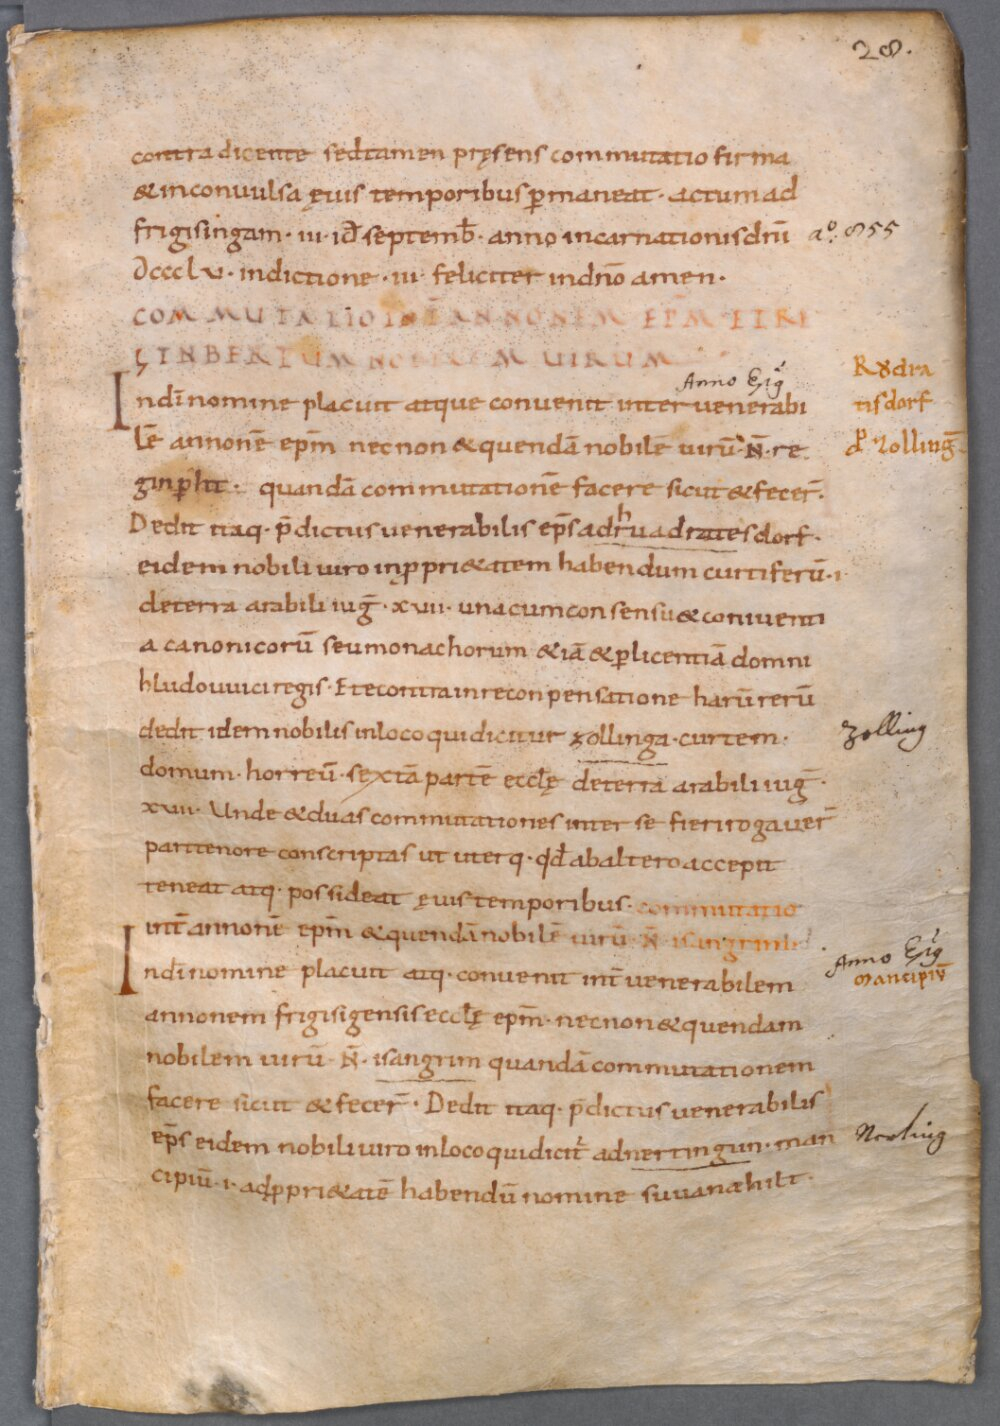 28.
contra dicente sedtamen pręsens commutatio firma
&inconuulsa ęius temporibus pmaneat · actum ad
frigisingam · iii · id septemb · anno incarnationis dnī aº. 855
Dccclv · indictione · iii · feliciter indnō amen ·
COMMUTATIO INT ANNONEM EPM ET RE
GINBERTUM NOBILEM UIRUM
Anno Epõ
Indī nomine placuit atque conuenit inter uenerabi
lē annonē epm̄ necnon &quendā nobilē uirū · N̄ · re
ginpht · quandā commutationē facere sicut &fecer̄ ·
Rȣdra
tisdorf
Zolling
Dedit itaq · p̄dictus uenerabilis ep̄s adhruadratesdorf ·
eidem nobili uiro inppri&atem habendum curtiferū · i ·
deterra arabili iuḡ · xvii · unacumconsensu&coniuenti
a canonicorū seumonachorum &iā&plicentiā domni
hludouuici regis · Etecontra inreconpensatione harū rerū
dedit idem nobilis inloco quidicitur zollinga · curtem · Zolling
domum · horreū · sextā partē eccłę deterra arabili iuḡ ·
xvii · Unde &duas commutationes inter se fieri rogauer̄
paritenore conscriptas ut uterq · qd abaltero accepit
teneat atq · possideat ęius temporibus · commutatio
int̄ annonē epm̄ &quendā nobilē uirū · N̄ · isangrimū
Indī nomine placuit atq · conuenit int̄ uenerabilem Anno Epõ
mancipiū
annonem frigisigensis eccłę epm̄ · necnon&quendam
nobilem uirū · N̄ · isangrim quandā commutationem
facere sicut &fecer̄ · Dedit itaq · p̄dictus uenerabilis
ep̄s eidem nobili uiro inloco quidicit adnertingun · man
cipiū · i · adppri&atē habendū nomine suuanahilt ·